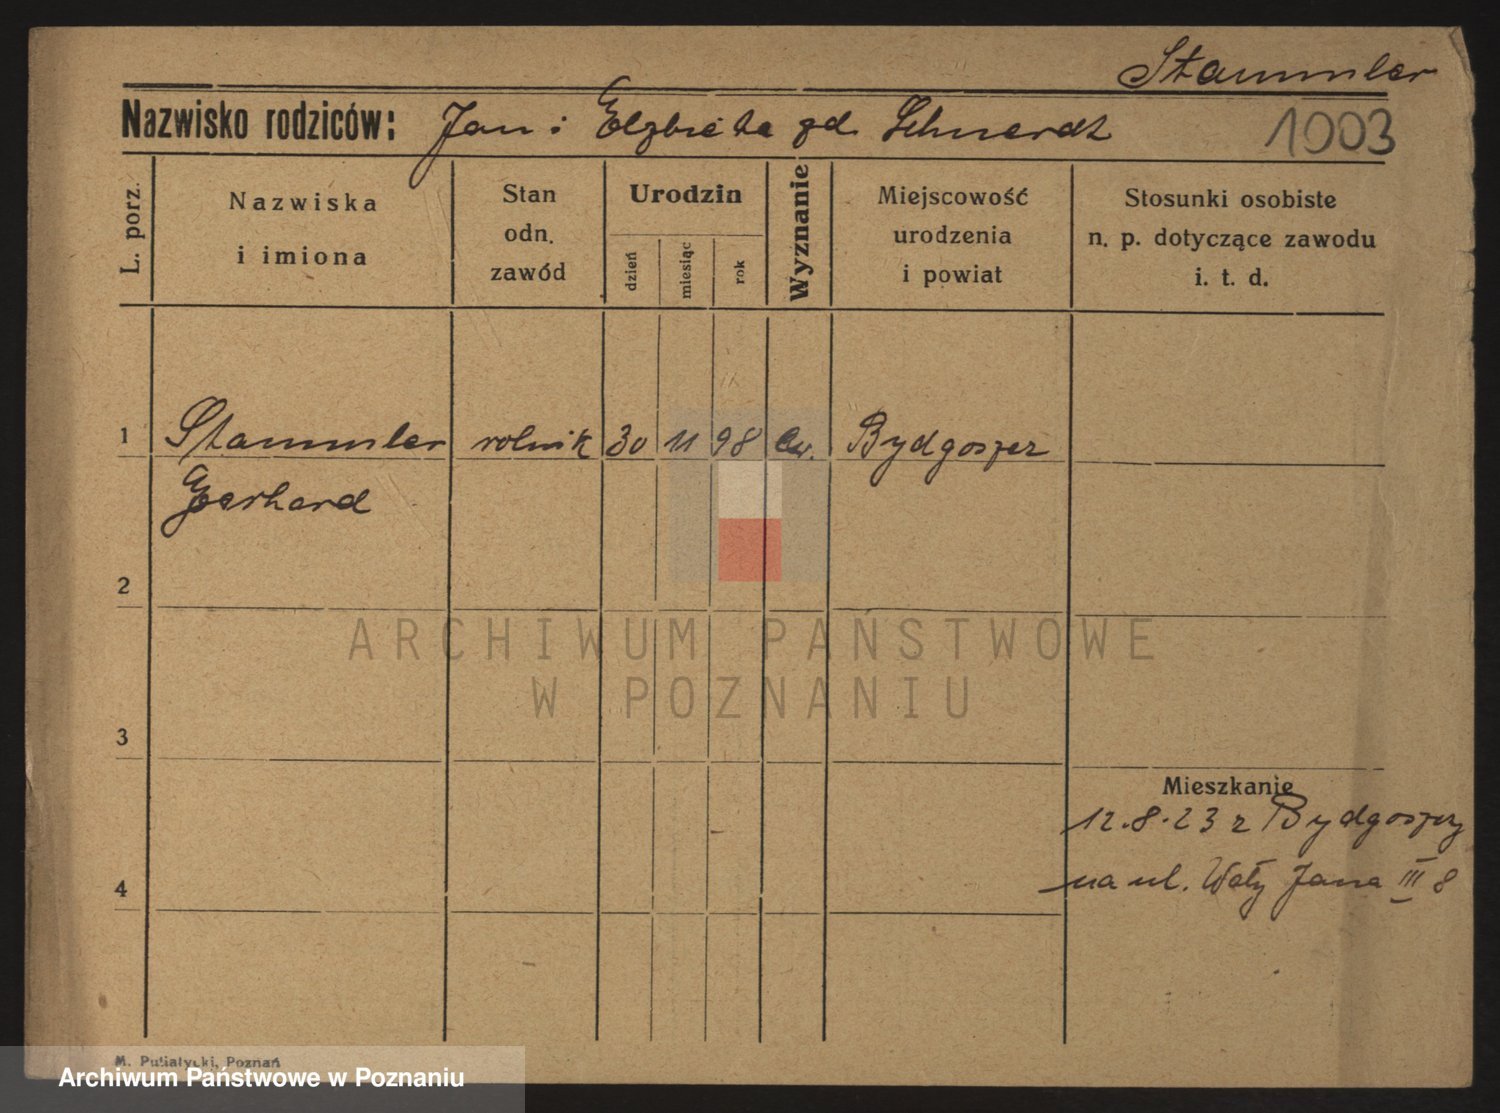 Stammler
Nazwisko rodziców: Jan i Elzbieta zd. Schnerdt
1003
L. porz.
Nazwiska
i imiona
Stan
odn.
zawód
Urodzin
dzień
miesiąc
rok
Wyznanie
Miejscowość
urodzenia
i powiat
Stosunki osobiste
n. p. dotyczące zawodu
i. t. d.
1 Stammler rolnik 30 11 98 Ew. Bydgoszcz
Gerhard
2
3
4
ARCHIWUM PAŃSTWOWE
W POZNANIU
Mieszkanie
12.8.23 z Bydgoszczy
na ul. Wały Jana III 8
M. Putiatycki, Poznań
Archiwum Państwowe w Poznaniu